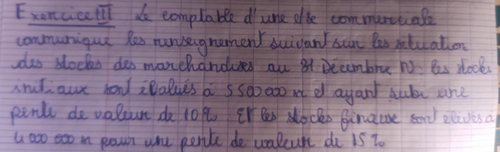 Exercice III Le comptable d'une sté commerciale
communique les renseignement suivant sur les situation
des stocks des marchandises au 31 Décembre N: les stocks
initiaux sont évalués à 5 500 000 n et ayant subi une
perte de valeur de 10% Et les stocks finaux sont élevés à
4 000 000 n pour une perte de valeur de 15%